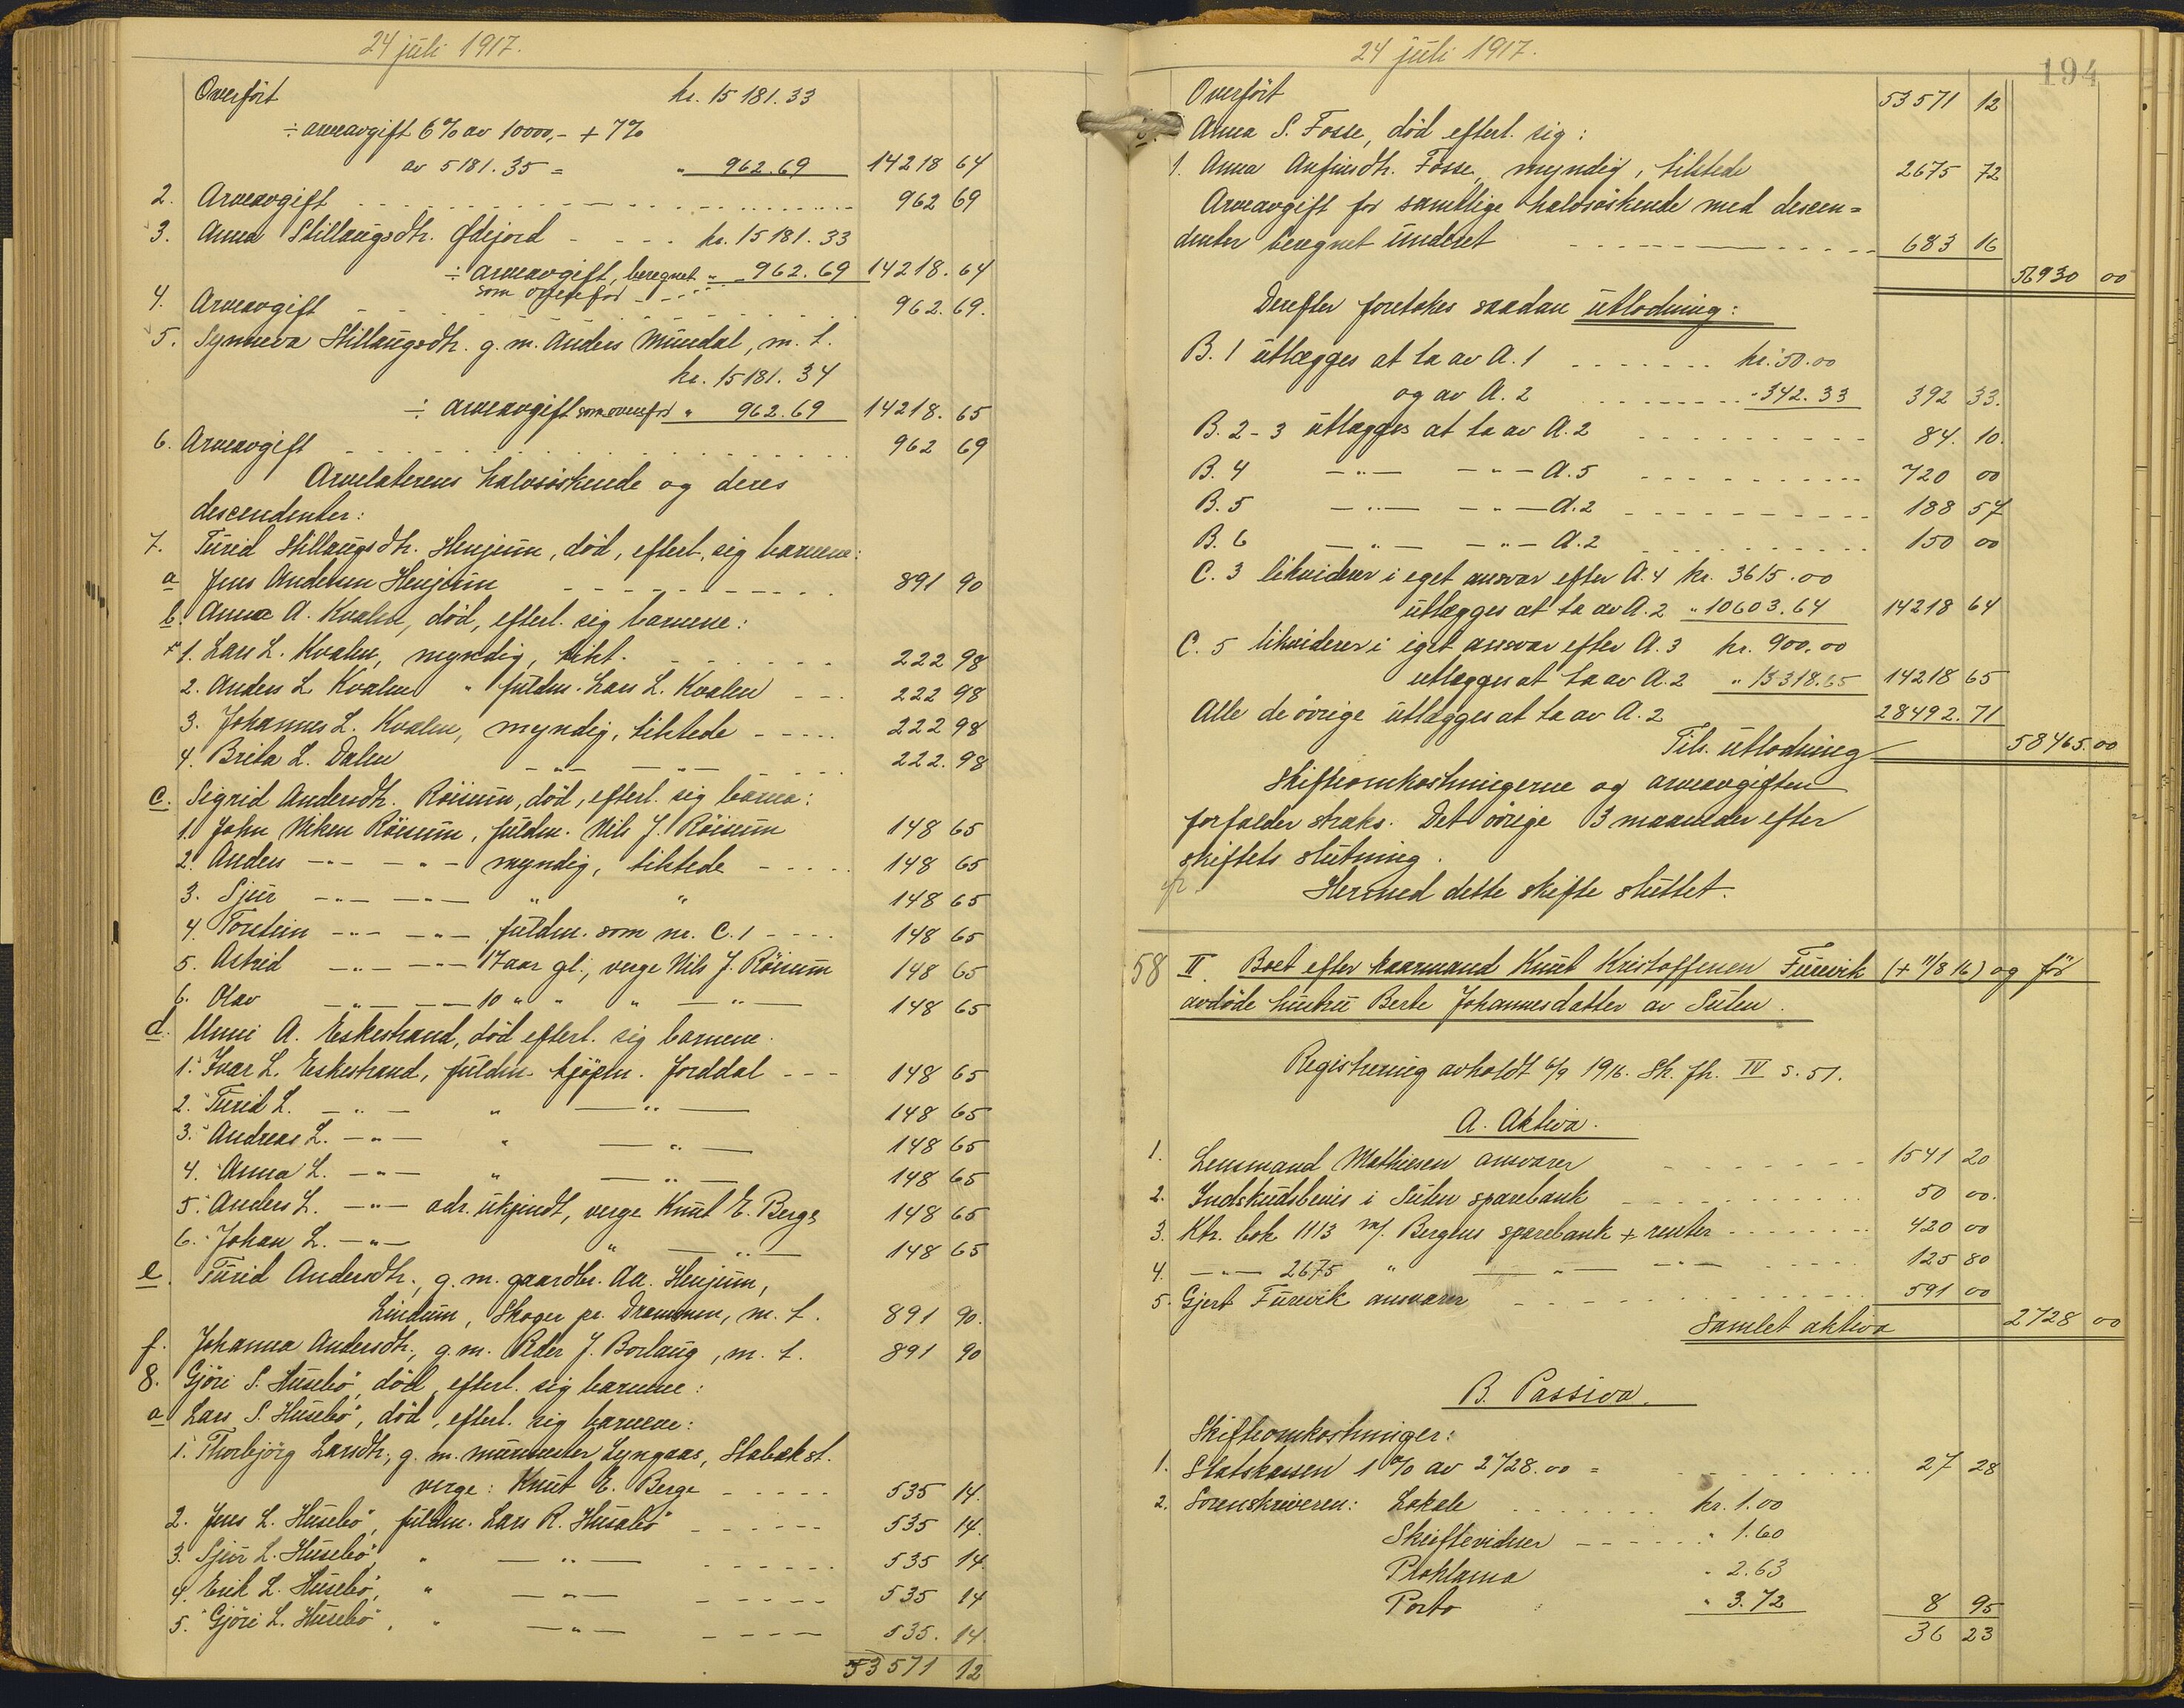 24 juli 1917.
Overført kr. 15 181.33
÷ arveavgift 6% av 10000,- + 7%
av 5181.35 = " 962.69 14218 64
2. Arveavgift 962 69
3. Anna Stillaugsdtr. Ødejord kr. 15181.33
÷ arveavgift, beregnet " 962.69 14218.64
som ovenfor
4. Arveavgift 962.69.
5. Synneva Stillaugsdtr. g.m. Anders Mundal, m. t.
kr. 15181.34
÷ arveavgift som ovenfor " 962.69 14218.65
6. Arveavgift 962 69
Arvelaterens halvsøskende og deres
descendenter:
7. Turid Stillaugsdtr. Henjum, død, efterl. sig barnene:
a Jens Andersen Henjum 891 90
b. Anna A. Kvalen, død, efterl. sig barnene:
1. Lars L. Kvalen, myndig, tilst. 222 98
2. Anders L. Kvalen " fuldm. Lars L. Kvalen 222 98
3. Johannes L. Kvalen, myndig, tilstede 222 98
4. Brita L. Dalen —"— —"— 222.98
c. Sigrid Andersdtr. Röisum, död, efterl. sig barna:
1. John Nilsen Röisum, fuldm. Nils J. Röisum 148 65
2. Anders —"— —"— myndig, tilstede 148 65
3. Sjur —"— —"— " " 148 65
4. Torstein —"— —"— fuldm. som nr. C.1 148 65
5. Astrid —"— —"— 17 aar gl., verge Nils J. Röisum 148 65
6. Olav —"— —"— 10 " " " —"— 148 65
d. Unni A. Eskestrand, död efterl. sig barnene.
1. Ivar L. Eskestrand, fuldm. kjöpm. Jorddal 148 65
2. Turid L. —"— " —"— 148 65
3. Andreas L. —"— " —"— 148 65
4. Anna L. —"— " —"— 148 65
5. Anders L. —"— adr. ukjendt, verge Knut E. Berge 148 65
6. Johan L. —"— " —"— 148 65
e. Turid Andersdtr., g.m. gaardbr. Aa. Henjum,
Lindum, Skoger pr. Drammen, m. t. 891 90.
f. Johanna Andersdtr., g.m. Peder J. Borlaug, m. t. 891 90
8. Gjöri S. Husebö, död, efterl. sig barnene:
a Lars S. Husebö, död, efterl. sig barnene:
1. Thorbjörg Larsdtr., g.m. murmester Lyngaas, Stabæk st.
verge: Knut E. Berge 535 14.
2. Jens L. Husebö, fuldm. Lars R. Husabö 535 14.
3. Sjur L. Husebö, " —"— 535 14.
4. Erik L. Husebö, " —"— 535 14
5. Gjöri L. Husebö, " —"— 535.14.
53571 12
24 juli 1917.
194
Overført 53571 12
Anna S. Fosse, död efterl. sig:
1. Anna Anfinsdtr. Fosse, myndig, tilstede 2675 72
Arveavgift for samtlige halvsöskende med descen=
denter beregnet underet 683 16
56930 00
Derefter foretokes saadan utlodning:
B. 1 utlægges at ta av A. 1 kr. 50.00
og av A. 2 " 342.33 392 33.
B. 2-3 utlægges at ta av A. 2 84.10.
B. 4 —"— —"— A. 5 720 00
B. 5 —"— —"— A. 2 188 57
B. 6 —"— —"— A. 2 150 00
C. 3 likviderer i eget ansvar efter A. 4 kr. 3615.00
utlægges at ta av A. 2 " 10603.64 14218 64
C. 5 likviderer i eget ansvar efter A. 3 kr. 900.00
utlægges at ta av A. 2 " 13318.65 14218 65
Alle de övrige utlægges at ta av A. 2 28492.71
Tils. utlodning 58465.00
Skifteomkostningerne og arveavgiften
forfalder straks. Det övrige 3 maaneder efter
skiftets slutning.
Hermed dette skifte sluttet.
58 II. Boet efter kaarmand Knut Kristoffersen Furevik (+ 11/8 16) og för
avdöde hustru Berte Johannesdatter av Sulen.
Registrering avholdt 6/9 1916. Sk. fh. IV s. 51.
A. Aktiva.
1. Lensmand Mathiesen ansvarer 1541 20
2. Indskudsbevis i Sulen sparebank 50 00.
3. Ktr. bok 1113 m/ Bergens sparebank + renter 420 00
4. —"— 2675 " —"— —"— 125 80
5. Gjert Furevik ansvarer 591 00
Samlet aktiva 2728 00
B. Passiva.
Skifteomkostninger:
1. Statskassen 1% av 2728.00 = 27 28
2. Sorenskriveren: Lokale kr. 1.00
Skiftevidner " 1.60
Proklama " 2.63
Porto " 3.72 8 95
36 23